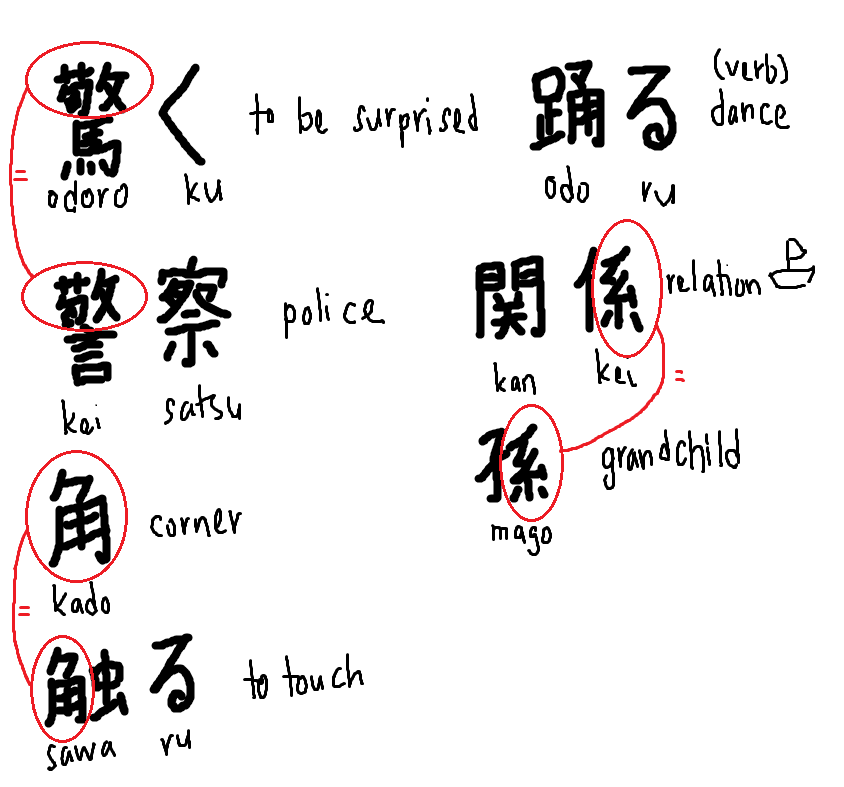 驚く to be surprised
odoro ku
=
警察 police
kei satsu
角 corner
kado
=
触る to touch
sawa ru
踊る (verb) dance
odo ru
関係 relation
kan kei
=
孫 grandchild
mago